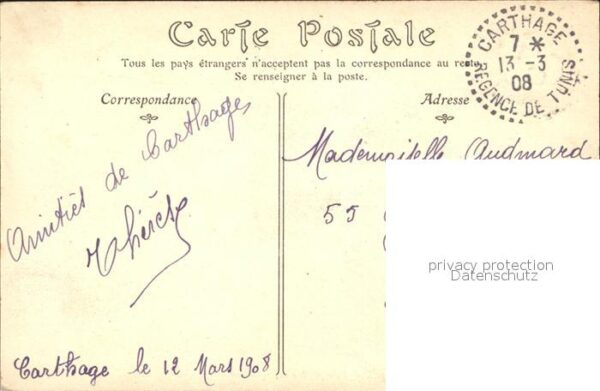 Carte Postale
Tous les pays étrangers n'acceptent pas la correspondance au recto
Se renseigner à la poste.
Correspondance
Adresse
CARTHAGE
7 *
13 -3
08
REGENCE DE TUNIS
Amitiés de Carthage
Thérèse
Carthage le 12 Mars 1908
Mademoiselle Audmard
55
privacy protection
Datenschutz